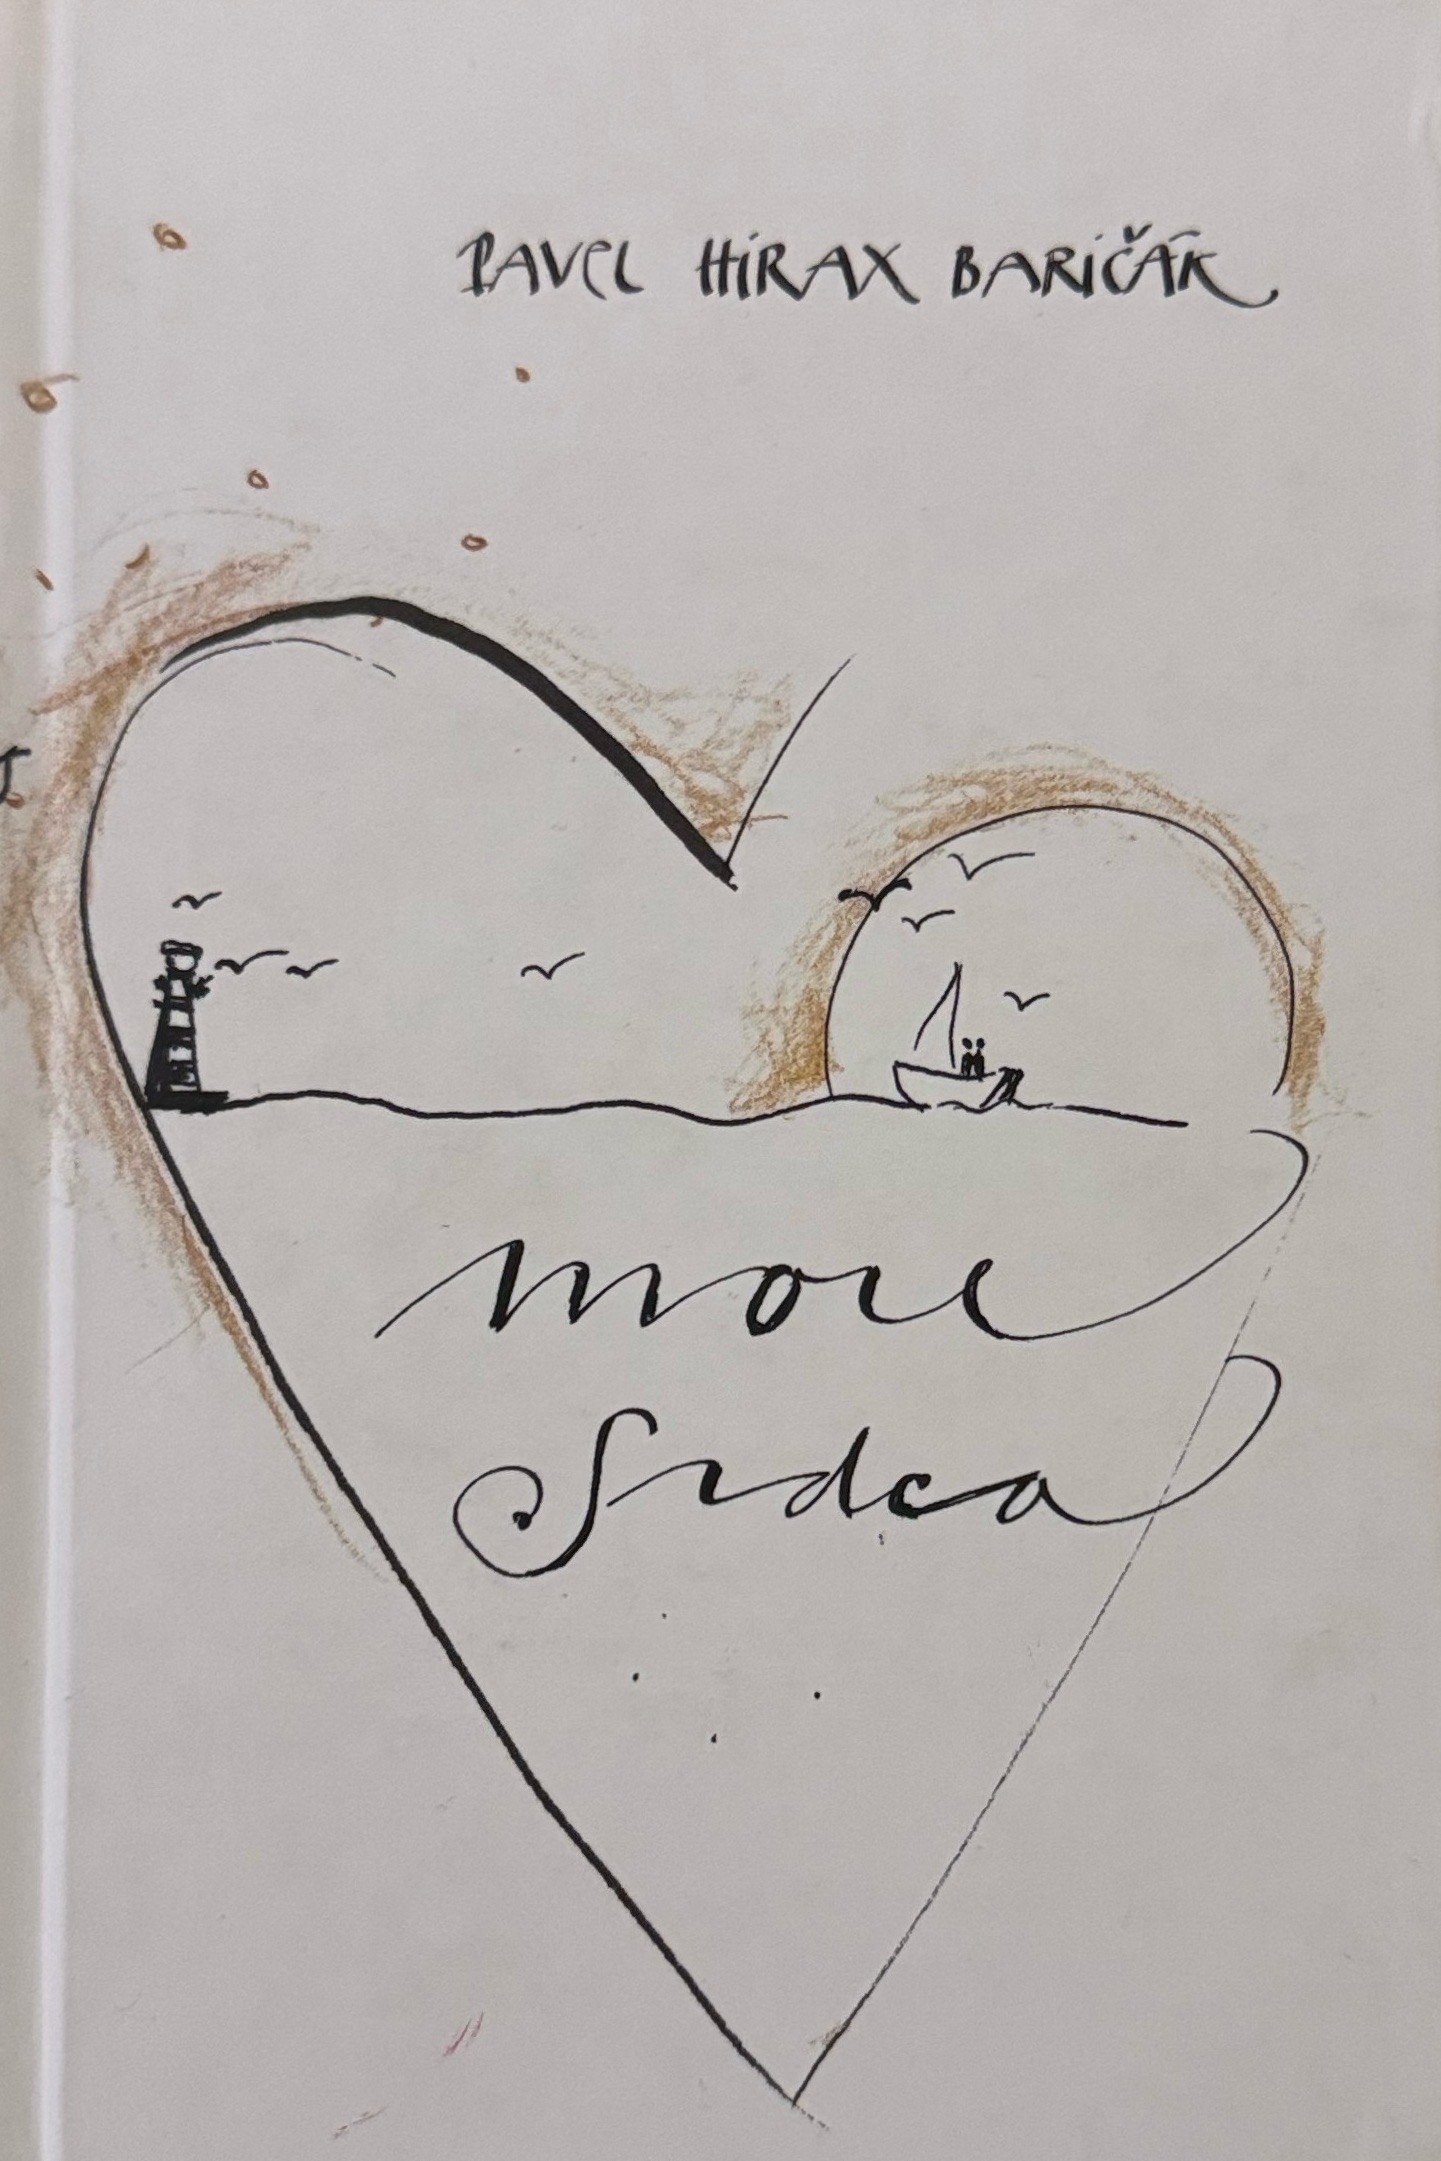 PAVEL HIRAX BARIČÁK
more
Srdca